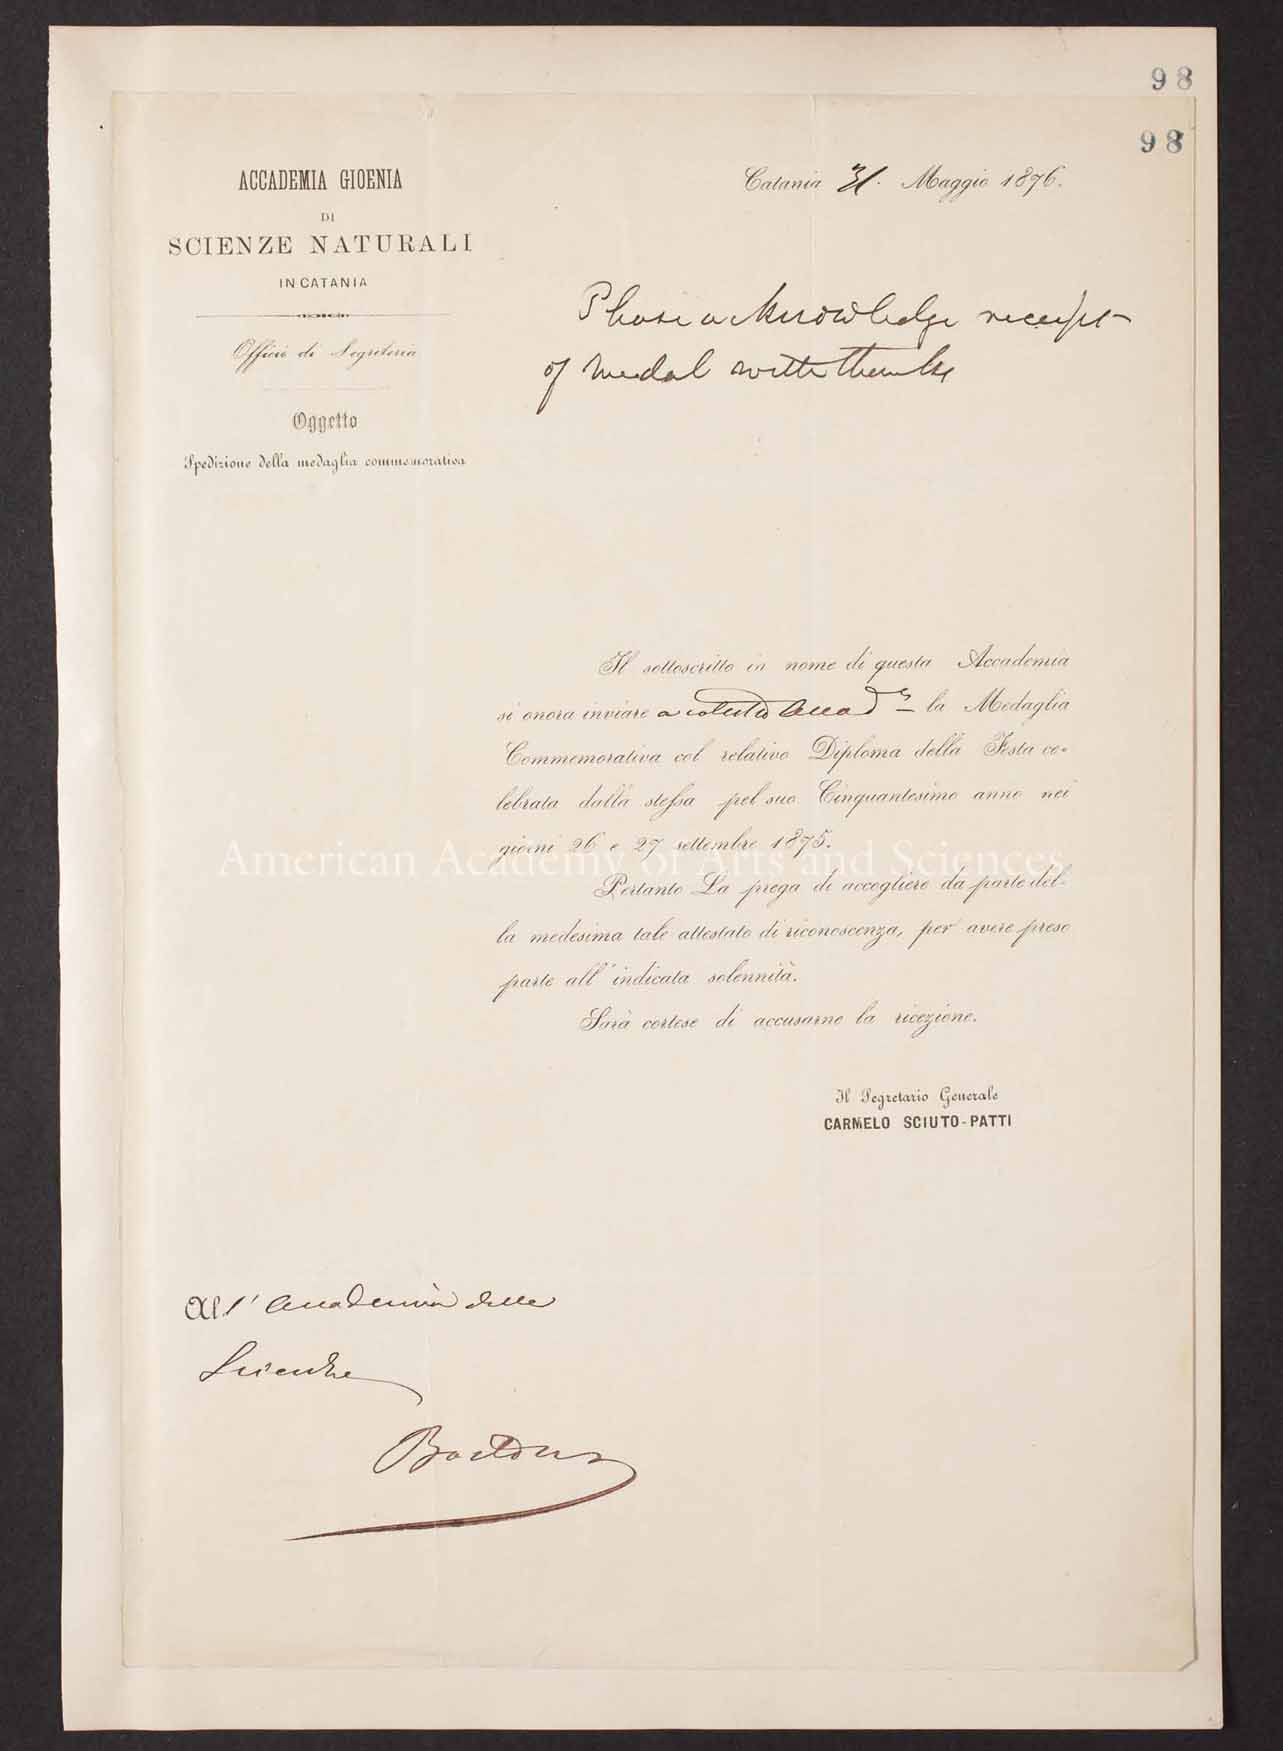 98
98
ACCADEMIA GIOENIA
DI
SCIENZE NATURALI
IN CATANIA
Officio di Segreteria
Oggetto
Spedizione della medaglia commemorativa
Catania 31. Maggio 1876.
Please acknowledge receipt
of medal with thanks
Il sottoscritto in nome di questa Accademia
si onora inviare a cotesta Accad la Medaglia
Commemorativa col relativo Diploma della Festa ce-
lebrata dalla stessa pel suo Cinquantesimo anno nei
giorni 26 e 27 settembre 1875.
American Academy of Arts and Sciences
Pertanto La prega di accogliere da parte del-
la medesima tale attestato di riconoscenza, per avere preso
parte all'indicata solennità.
Sarà cortese di accusarne la ricezione.
Il Segretario Generale
CARMELO SCIUTO-PATTI
All' Accademia delle
Scienze
Boston